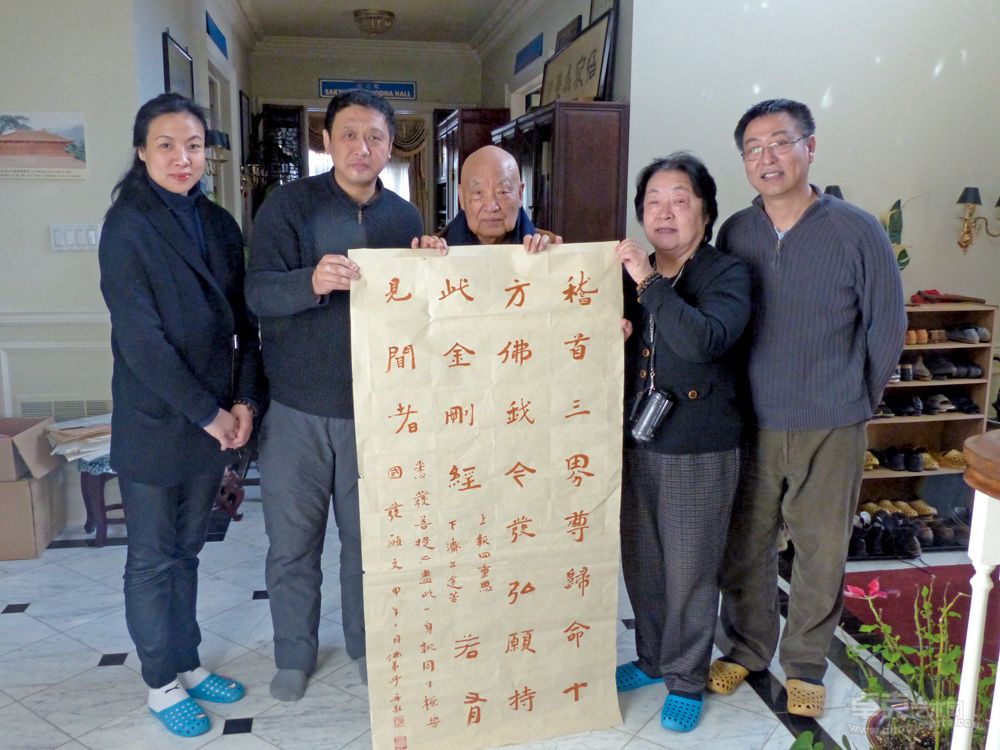 SAKY DDHA HALL
稽首三界尊歸命十
方佛我今發弘願持
此金剛經
上報四重恩
下濟三途苦
若有
見聞者
悉發菩提心盡此一身報同生極樂
國發願文甲午 月佛弟子